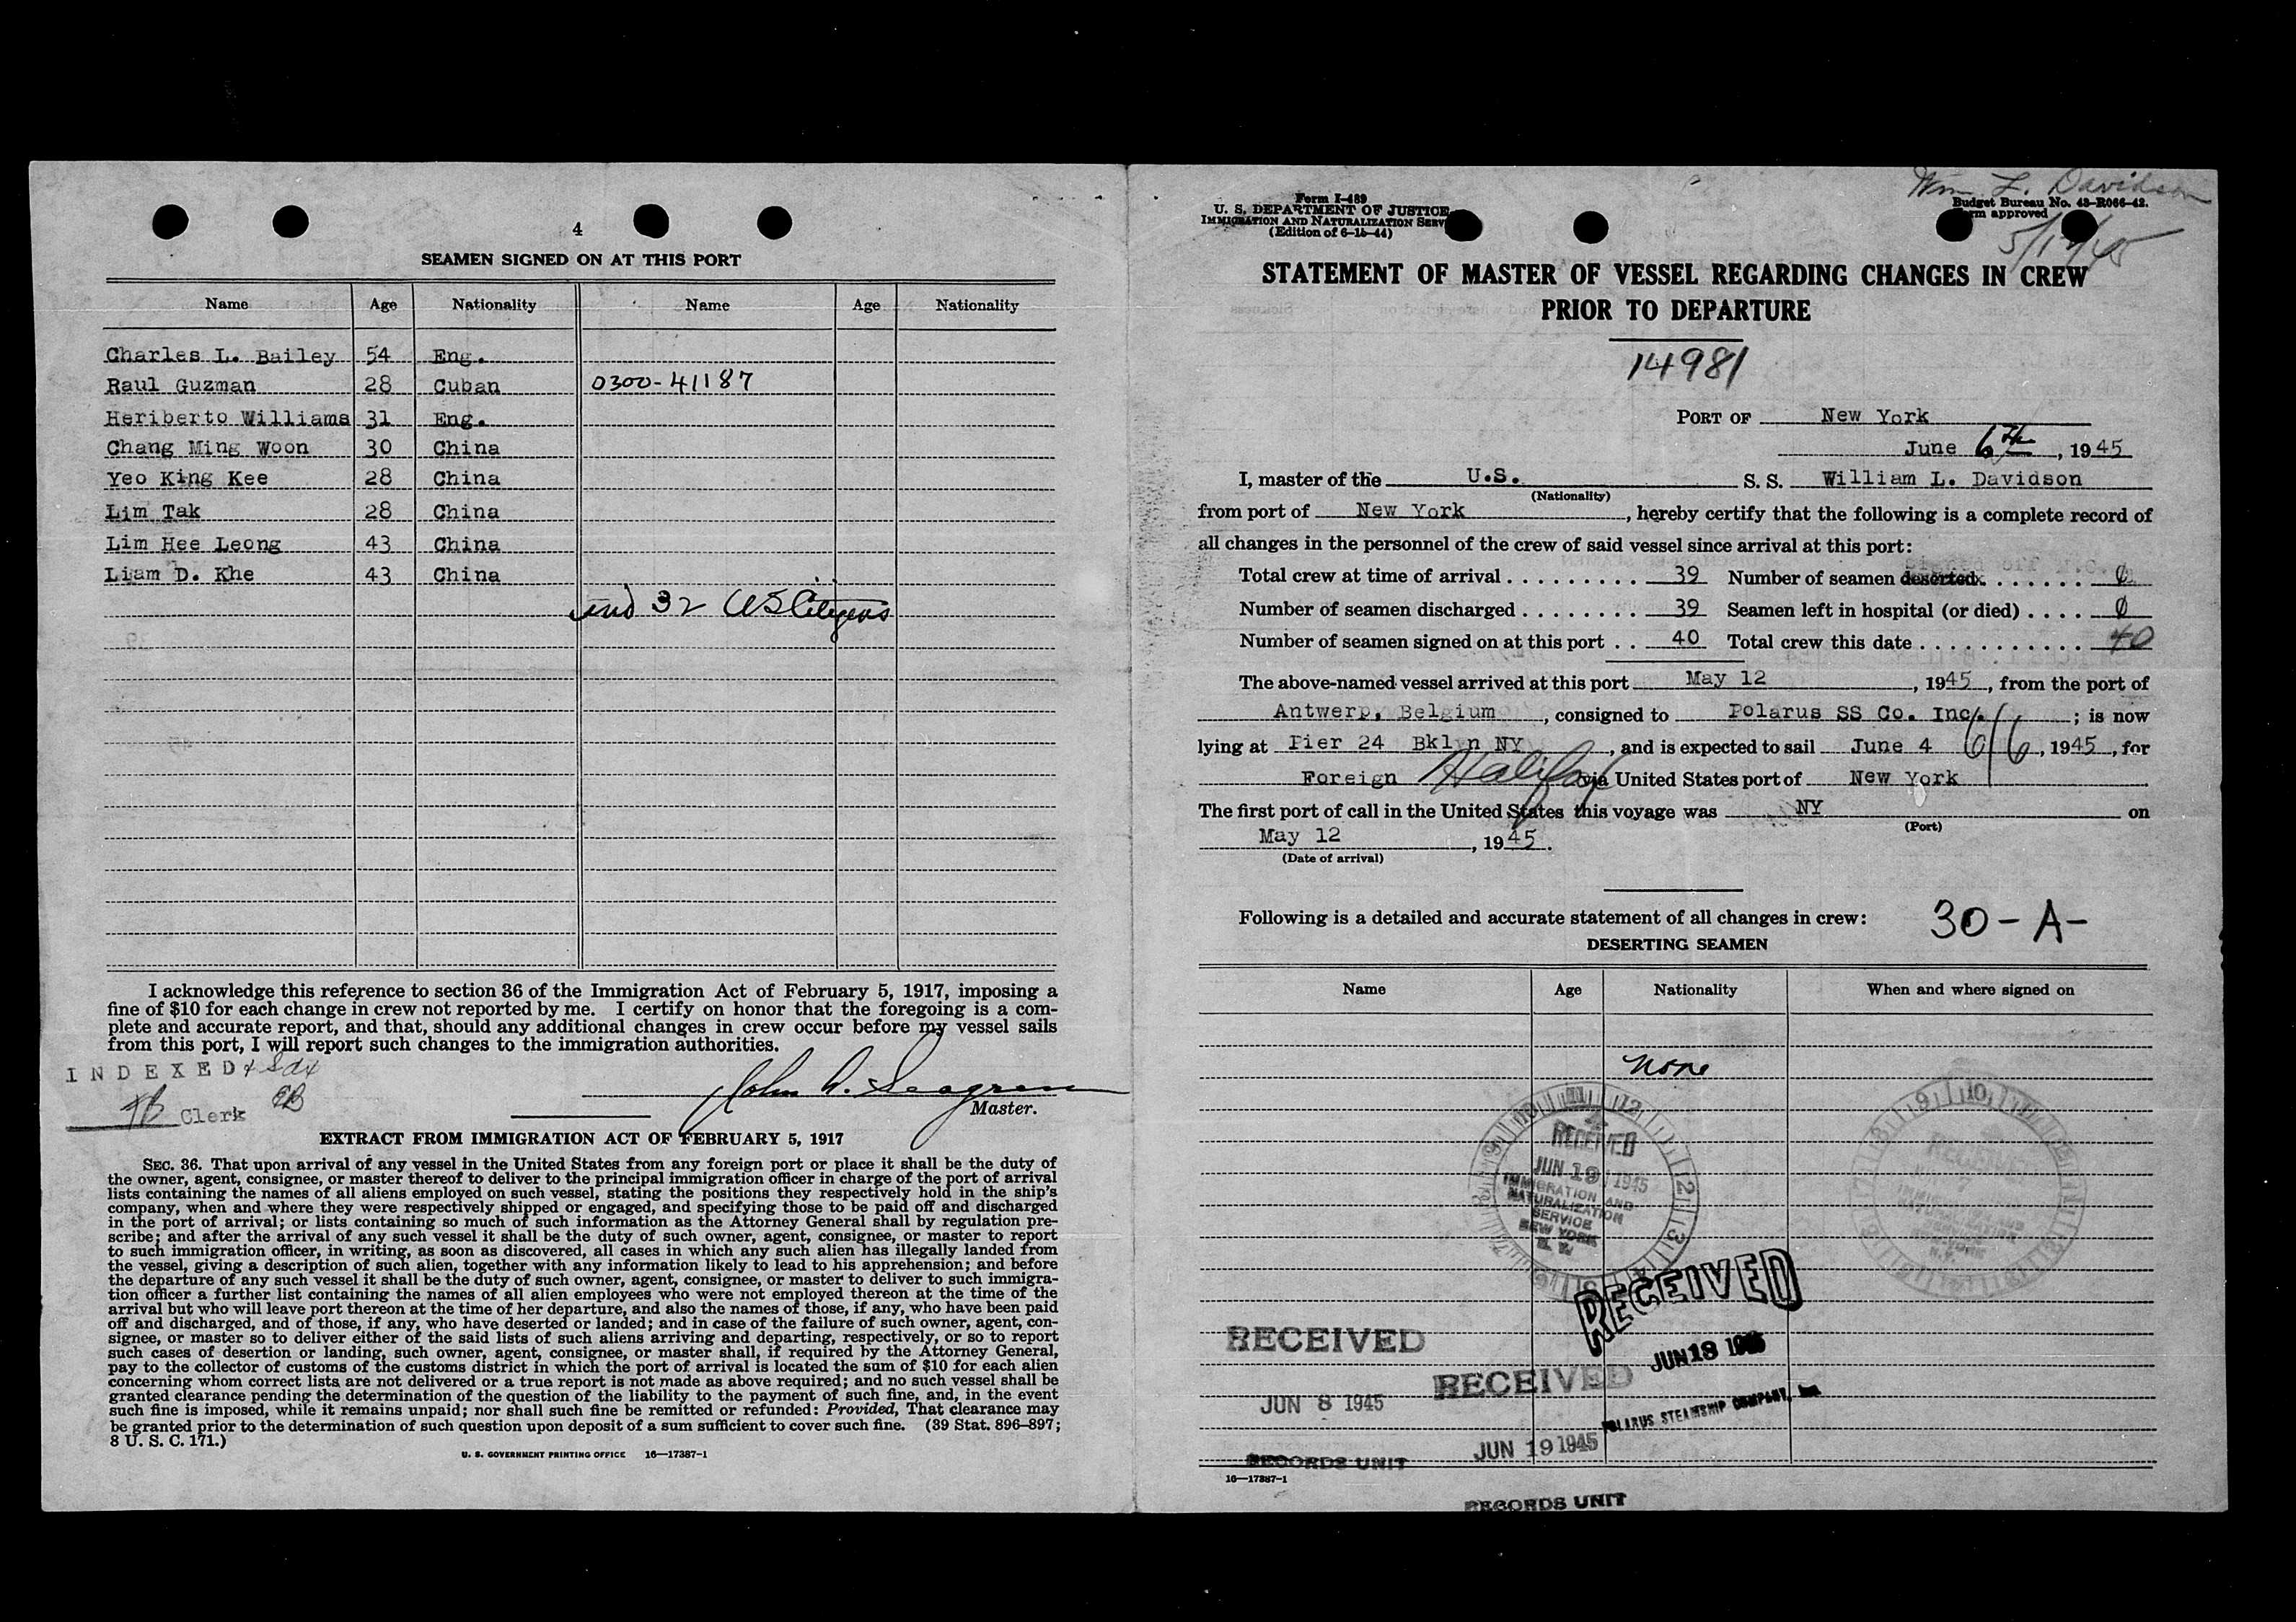 4
SEAMEN SIGNED ON AT THIS PORT
Name Age Nationality Name Age Nationality
Charles L. Bailey 54 Eng.
Raul Guzman 28 Cuban 0300-41187
Heriberto Williams 31 Eng.
Chang Ming Woon 30 China
Yeo King Kee 28 China
Lim Tak 28 China
Lim Hee Leong 43 China
Liam D. Khe 43 China
and 32 US Citizens
I acknowledge this reference to section 36 of the Immigration Act of February 5, 1917, imposing a
fine of $10 for each change in crew not reported by me. I certify on honor that the foregoing is a com-
plete and accurate report, and that, should any additional changes in crew occur before my vessel sails
from this port, I will report such changes to the immigration authorities.
INDEXED
Clerk
John
Master.
EXTRACT FROM IMMIGRATION ACT OF FEBRUARY 5, 1917
SEC. 36. That upon arrival of any vessel in the United States from any foreign port or place it shall be the duty of
the owner, agent, consignee, or master thereof to deliver to the principal immigration officer in charge of the port of arrival
lists containing the names of all aliens employed on such vessel, stating the positions they respectively hold in the ship's
company, when and where they were respectively shipped or engaged, and specifying those to be paid off and discharged
in the port of arrival; or lists containing so much of such information as the Attorney General shall by regulation pre-
scribe; and after the arrival of any such vessel it shall be the duty of such owner, agent, consignee, or master to report
to such immigration officer, in writing, as soon as discovered, all cases in which any such alien has illegally landed from
the vessel, giving a description of such alien, together with any information likely to lead to his apprehension; and before
the departure of any such vessel it shall be the duty of such owner, agent, consignee, or master to deliver to such immigra-
tion officer a further list containing the names of all alien employees who were not employed thereon at the time of the
arrival but who will leave port thereon at the time of her departure, and also the names of those, if any, who have been paid
off and discharged, and of those, if any, who have deserted or landed; and in case of the failure of such owner, agent, con-
signee, or master so to deliver either of the said lists of such aliens arriving and departing, respectively, or so to report
such cases of desertion or landing, such owner, agent, consignee, or master shall, if required by the Attorney General,
pay to the collector of customs of the customs district in which the port of arrival is located the sum of $10 for each alien
concerning whom correct lists are not delivered or a true report is not made as above required; and no such vessel shall be
granted clearance pending the determination of the question of the liability to the payment of such fine, and, in the event
such fine is imposed, while it remains unpaid; nor shall such fine be remitted or refunded: Provided, That clearance may
be granted prior to the determination of such question upon deposit of a sum sufficient to cover such fine. (39 Stat. 896–897;
8 U. S. C. 171.)
U. S. GOVERNMENT PRINTING OFFICE 16—17387-1
Wm L. Davidson
Form I-489
U. S. DEPARTMENT OF JUSTICE
IMMIGRATION AND NATURALIZATION SERV
(Edition of 6-15-44)
Budget Bureau No. 43-R066-42.
approved
STATEMENT OF MASTER OF VESSEL REGARDING CHANGES IN CREW
PRIOR TO DEPARTURE
14981
PORT OF New York
June 6th, 1945
I, master of the U.S. S. S. William L. Davidson
(Nationality)
from port of New York, hereby certify that the following is a complete record of
all changes in the personnel of the crew of said vessel since arrival at this port:
Total crew at time of arrival 39 Number of seamen deserted 0
Number of seamen discharged 39 Seamen left in hospital (or died) 0
Number of seamen signed on at this port 40 Total crew this date 40
The above-named vessel arrived at this port May 12, 1945, from the port of
Antwerp, Belgium, consigned to Polarus SS Co. Inc.; is now
lying at Pier 24 Bklyn NY, and is expected to sail June 4 6/6, 1945, for
Foreign Halifax via United States port of New York
The first port of call in the United States this voyage was NY on
(Port)
May 12, 1945.
(Date of arrival)
Following is a detailed and accurate statement of all changes in crew: 30-A-
DESERTING SEAMEN
Name Age Nationality When and where signed on
None
RECEIVED
JUN 19 1945
IMMIGRATION AND
NATURALIZATION
SERVICE
NEW YORK
N. Y.
RECEIVED
JUN 18 1945
POLARUS STEAMSHIP COMPANY, Inc.
RECEIVED
JUN 8 1945
RECORDS UNIT
RECEIVED
JUN 19 1945
RECORDS UNIT
16—17387-1